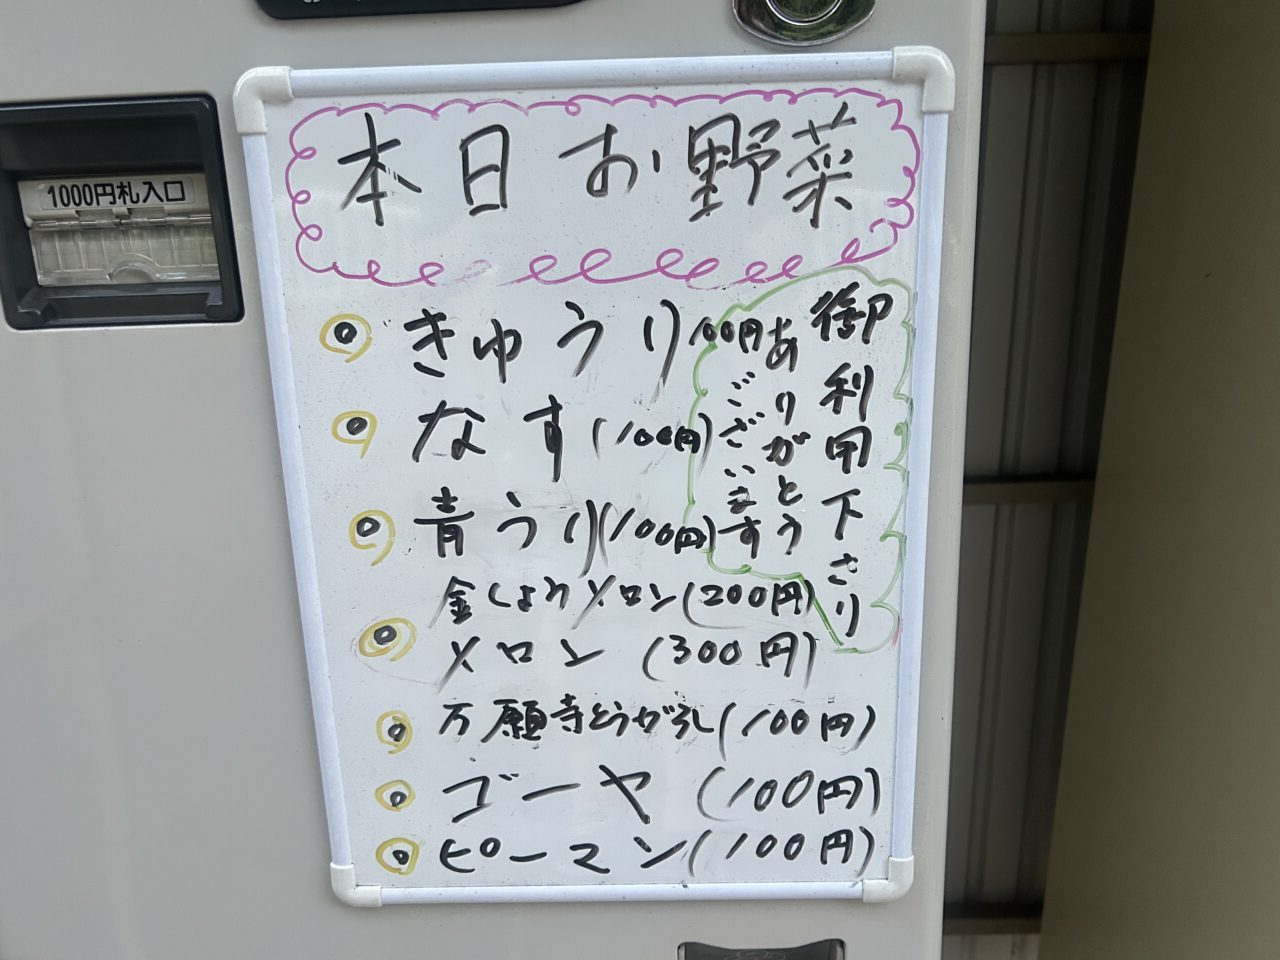 1000円札入口
本日お野菜
きゅうり100円
なす(100円)
青うり(100円)
金しょうメロン(200円)
メロン(300円)
万願寺とうがらし(100円)
ゴーヤ(100円)
ピーマン(100円)
御利用下さり
ありがとう
ございます